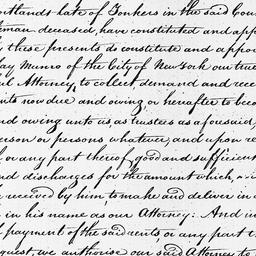 ortlandt late of Yonkers in the said Coun
tman deceased, have constituted and app
y these presents do constitute and appoi
ay Munro of the City of New York our true
ul Attorney, to collect, demand and rece
nts now due and owing, or hereafter to beco
nd owing unto us, as trustees as aforesaid,
erson or persons whatever, and upon re
t or any part thereof, good and sufficient
nd discharges for the amount which, ~ i
e received by him to make and deliver in o
in his name as our Attorney: And in
t payment of the said rents, or any part t
quest, we authorise our said Attorney to